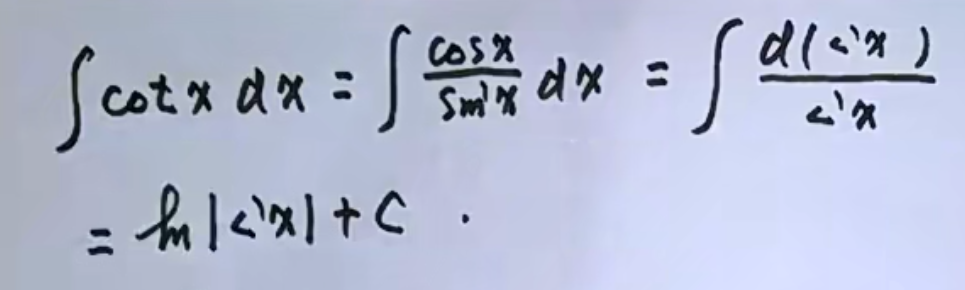 ∫ cot x dx = ∫ cos x / sin x dx = ∫ d(sin x) / sin x
= ln |sin x| + C .